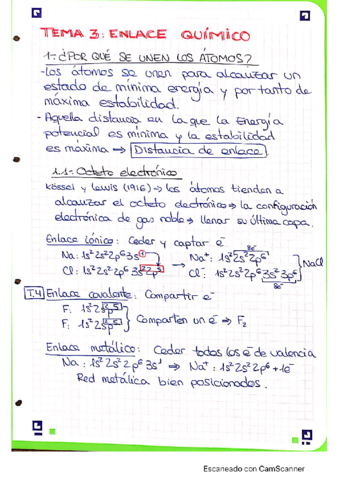 TEMA 3: ENLACE QUÍMICO
1-¿POR QUÉ SE UNEN LOS ÁTOMOS?
-Los átomos se unen para alcanzar un
estado de mínima energía y por tanto de
máxima estabilidad.
-Aquella distancia en la que la Energía
potencial es mínima y la estabilidad
es máxima → Distancia de enlace
1.1- Octeto electrónico
Kössel y Lewis (1916) → los átomos tienden a
alcanzar el octeto electrónico → la configuración
electrónica de gas noble → llenar su última capa.
Enlace iónico: Ceder y captar e⁻
Na: 1s² 2s² 2p⁶ 3s¹ → Na⁺: 1s² 2s² 2p⁶ 8e⁻
Cl: 1s² 2s² 2p⁶ 3s² 3p⁵ Cl⁻: 1s² 2s² 2p⁶ 3s² 3p⁶ 8e⁻ NaCl
T.4 Enlace covalente: Compartir e⁻
F: 1s² 2s² 2p⁵
F: 1s² 2s² 2p⁵ Comparten un e⁻ → F₂
Enlace metálico: Ceder todos los e⁻ de valencia
Na: 1s² 2s² 2p⁶ 3s¹ → Na⁺: 1s² 2s² 2p⁶ + 1e⁻
Red metálica bien posicionados.
Escaneado con CamScanner